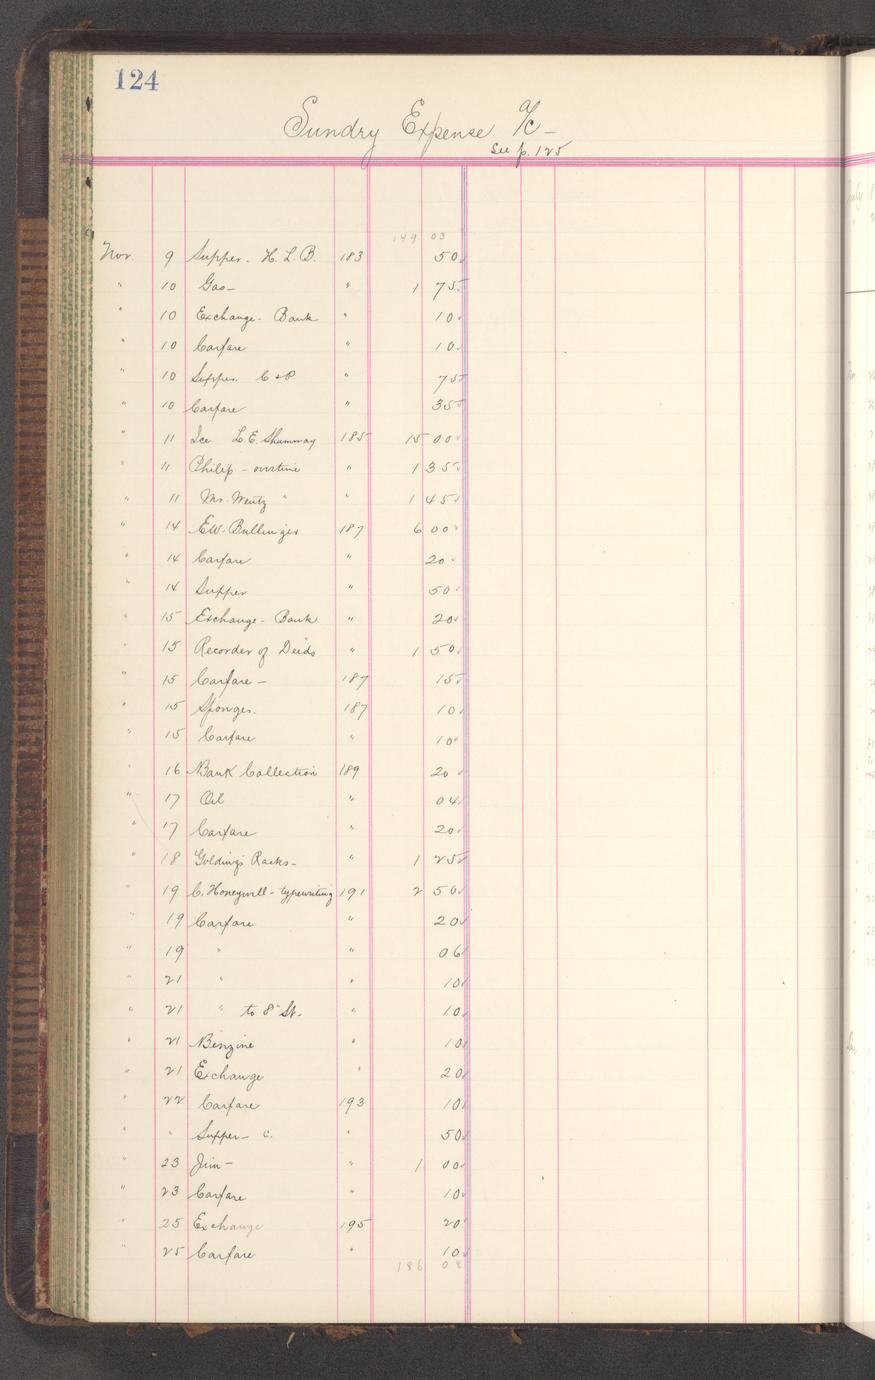 124
Sundry Expense a/c -
See p. 125
149 03
Nov. 9 Supper. H. L. B. 183 50
" 10 Gas - " 1 75
" 10 Exchange - Bank " 10
" 10 Carfare " 10
" 10 Supper. C & P. " 75
" 10 Carfare 35
" 11 Ice L. E. Shumway 185 15 00
" 11 Philip - overtime " 1 35
" 11 Mr. Wentz " " 1 45
" 14 E.W. Bullinger 187 6 00
" 14 Carfare " 20
" 14 Supper " 50
" 15 Exchange - Bank " 20
" 15 Recorder of Deeds " 1 50
" 15 Carfare - 187 15
" 15 Sponges. 187 10
" 15 Carfare " 10
" 16 Bank Collection 189 20
" 17 Oil " 04
" 17 Carfare " 20
" 18 Golding's Racks - " 1 25
" 19 C. Honeywell - typewriting 191 2 50
" 19 Carfare " 20
" 19 " " 06
" 21 " " 10
" 21 " to 8" St. " 10
" 21 Benzine " 10
" 21 Exchange " 20
" 22 Carfare 193 10
" " Supper - C. " 50
" 23 Jim - " 1 00
" 23 Carfare " 10
" 25 Exchange 195 20
" 25 Carfare " 10
186 08